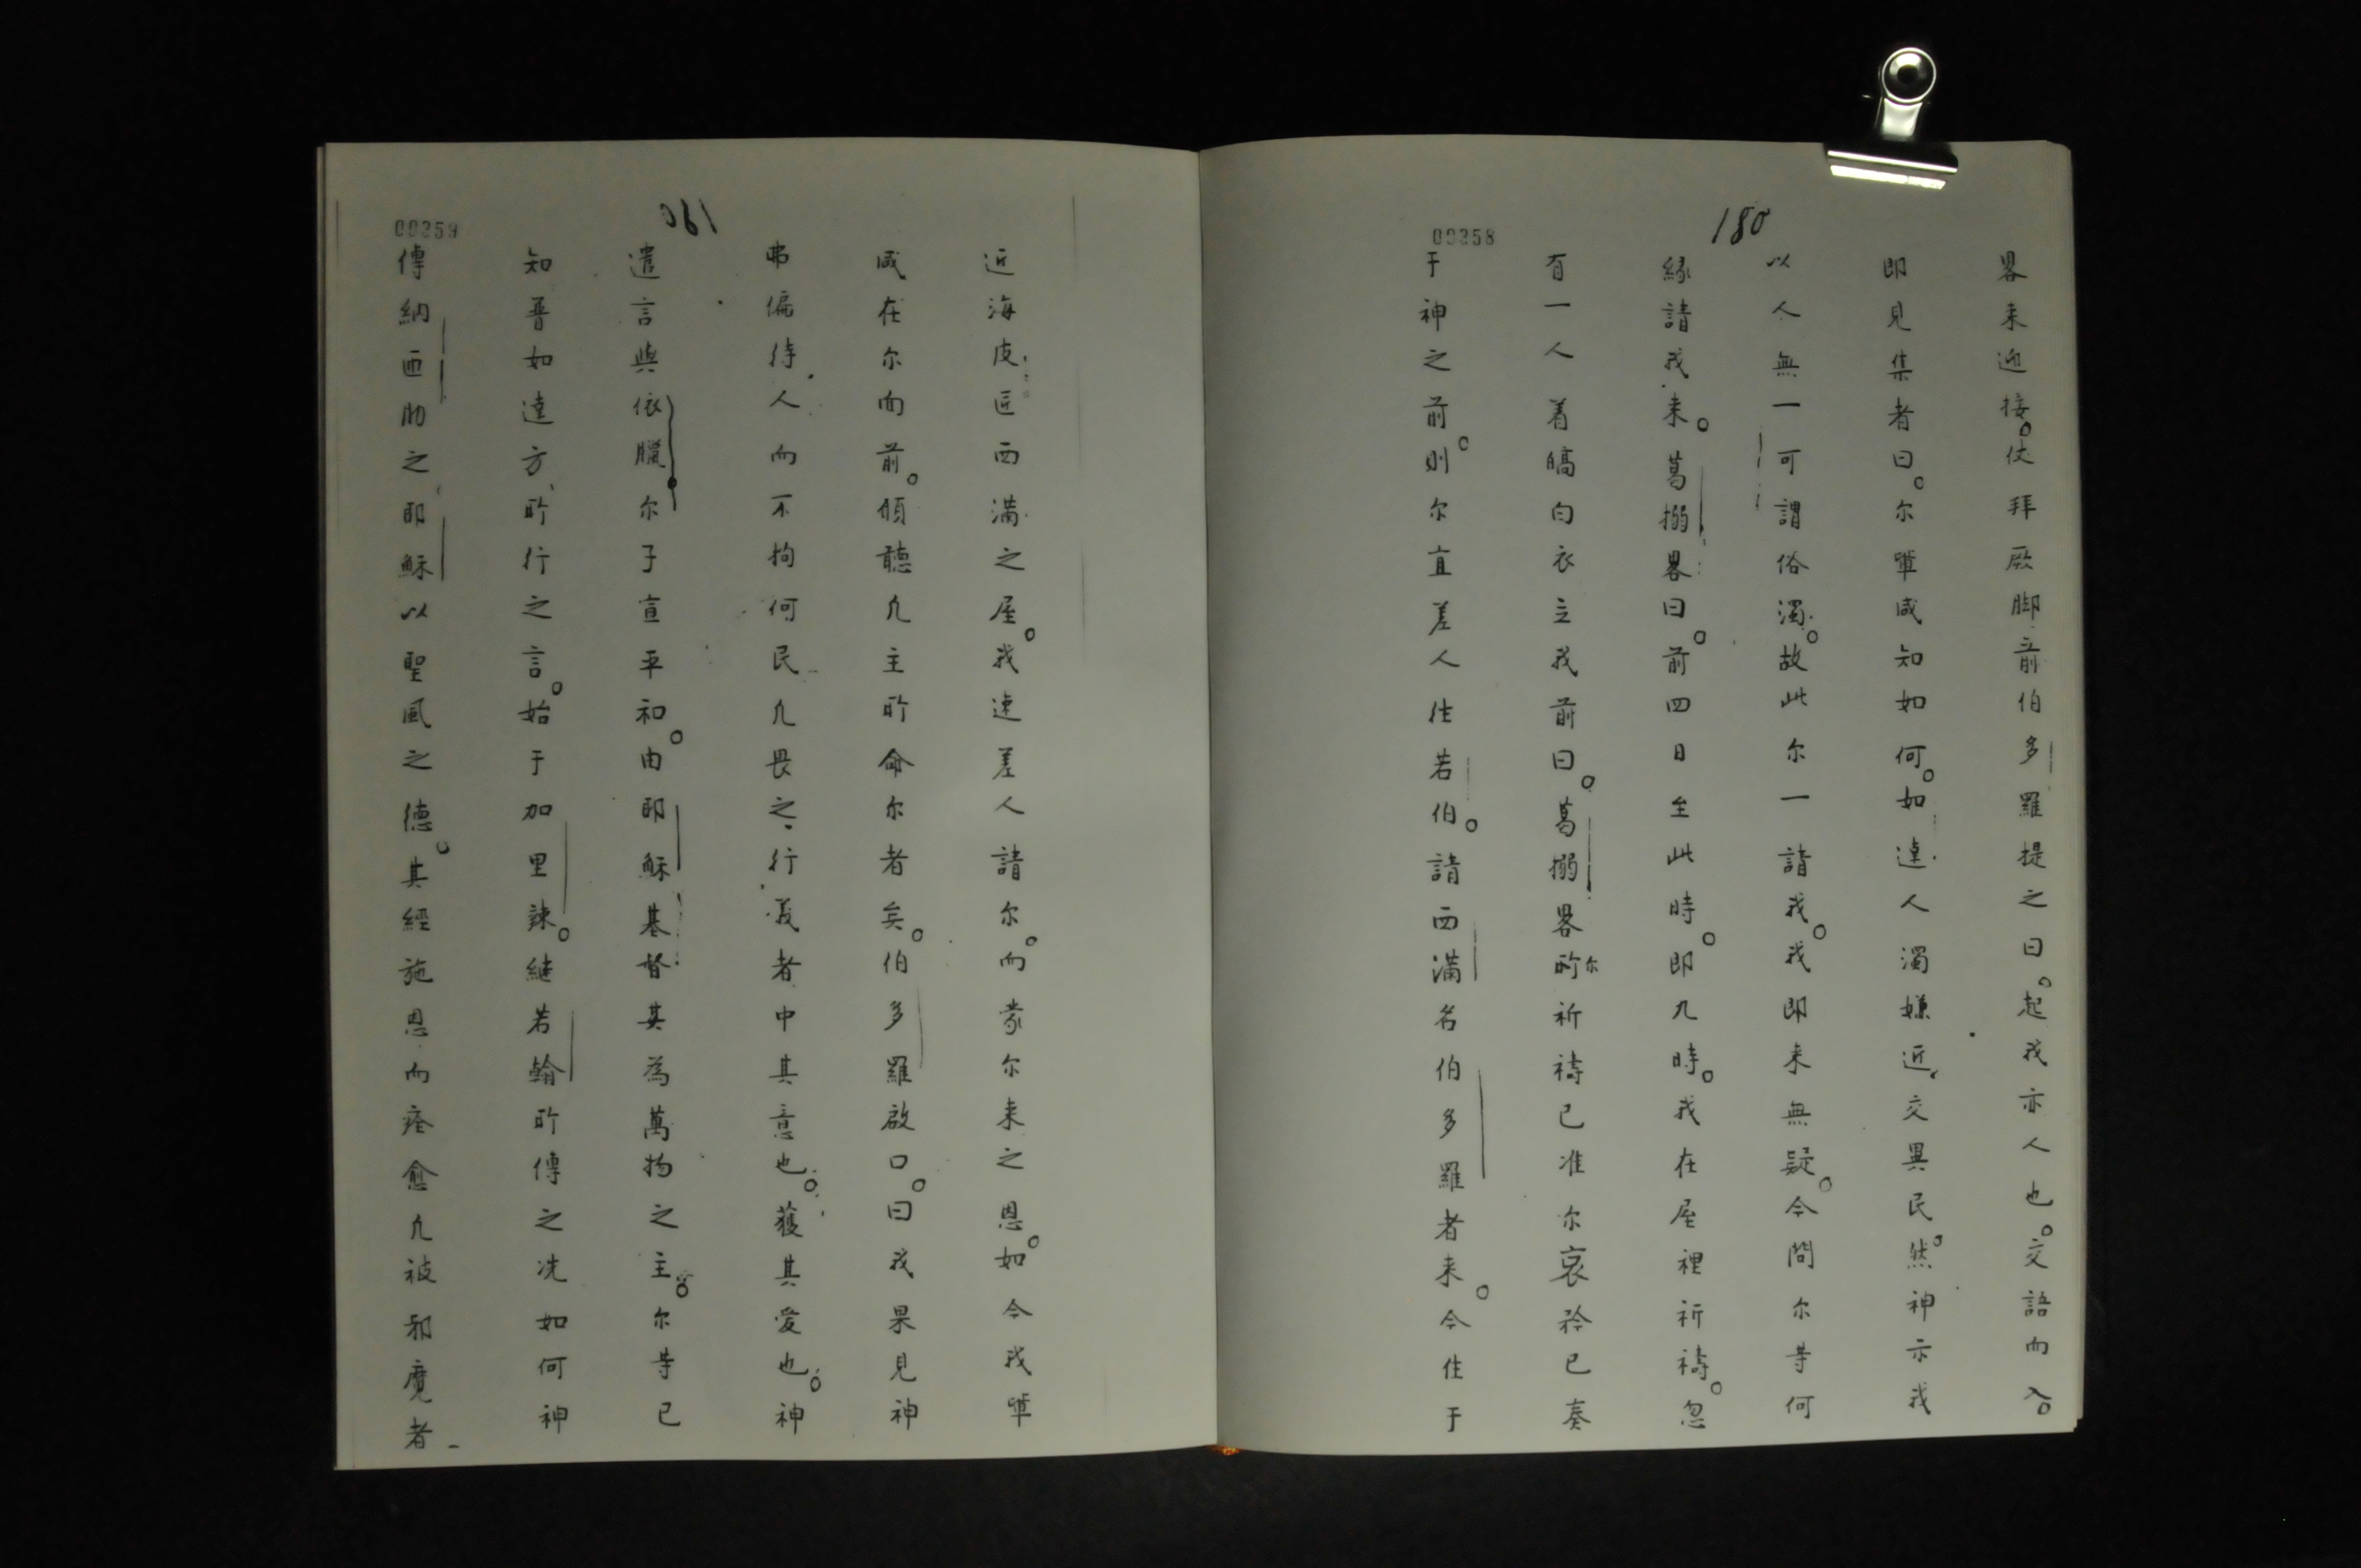 180
00358
畧来迎接。伏拜厥脚前伯多羅提之曰。起我亦人也。交語而入。
即見集者曰。尔軰咸知如何。如達人濁嫌近交異民。然神示我
以人無一可謂俗濁。故此尔一請我。我即来無疑。今問尔等何
緣請我来。葛搦畧曰。前四日至此時。即九時。我在屋裡祈禱。忽
有一人着皜白衣立我前曰。葛搦畧尔所祈禱已准尔哀矜已奏
于神之前。則尔宜差人往若伯。請西滿名伯多羅者来。今住于
061
00359
近海皮匠西滿之屋。我速差人請尔。而蒙尔来之恩。如今我軰
咸在尔面前。傾聽凢主所命尔者矣。伯多羅啟口。曰我果見神
弗偏待人而不拘何民凢畏之行義者中其意也。獲其愛也。神
遣言與依臘尔子宣平和。由耶穌基督其為萬物之主。尔等已
知普如達方所行之言。始于加里辣。継若翰所傳之洗如何神
傅納匝肋之耶穌以聖風之德。其經施恩而痊愈凢被邪魔者